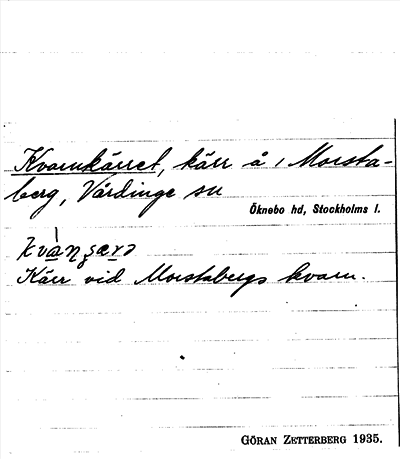 Kvarnkärret, kärr å / Morsta-
berg, Vårdinge sn
Öknebo hd, Stockholms l.
Kärr vid Morstabergs kvarn.
GÖRAN ZETTERBERG 1935.